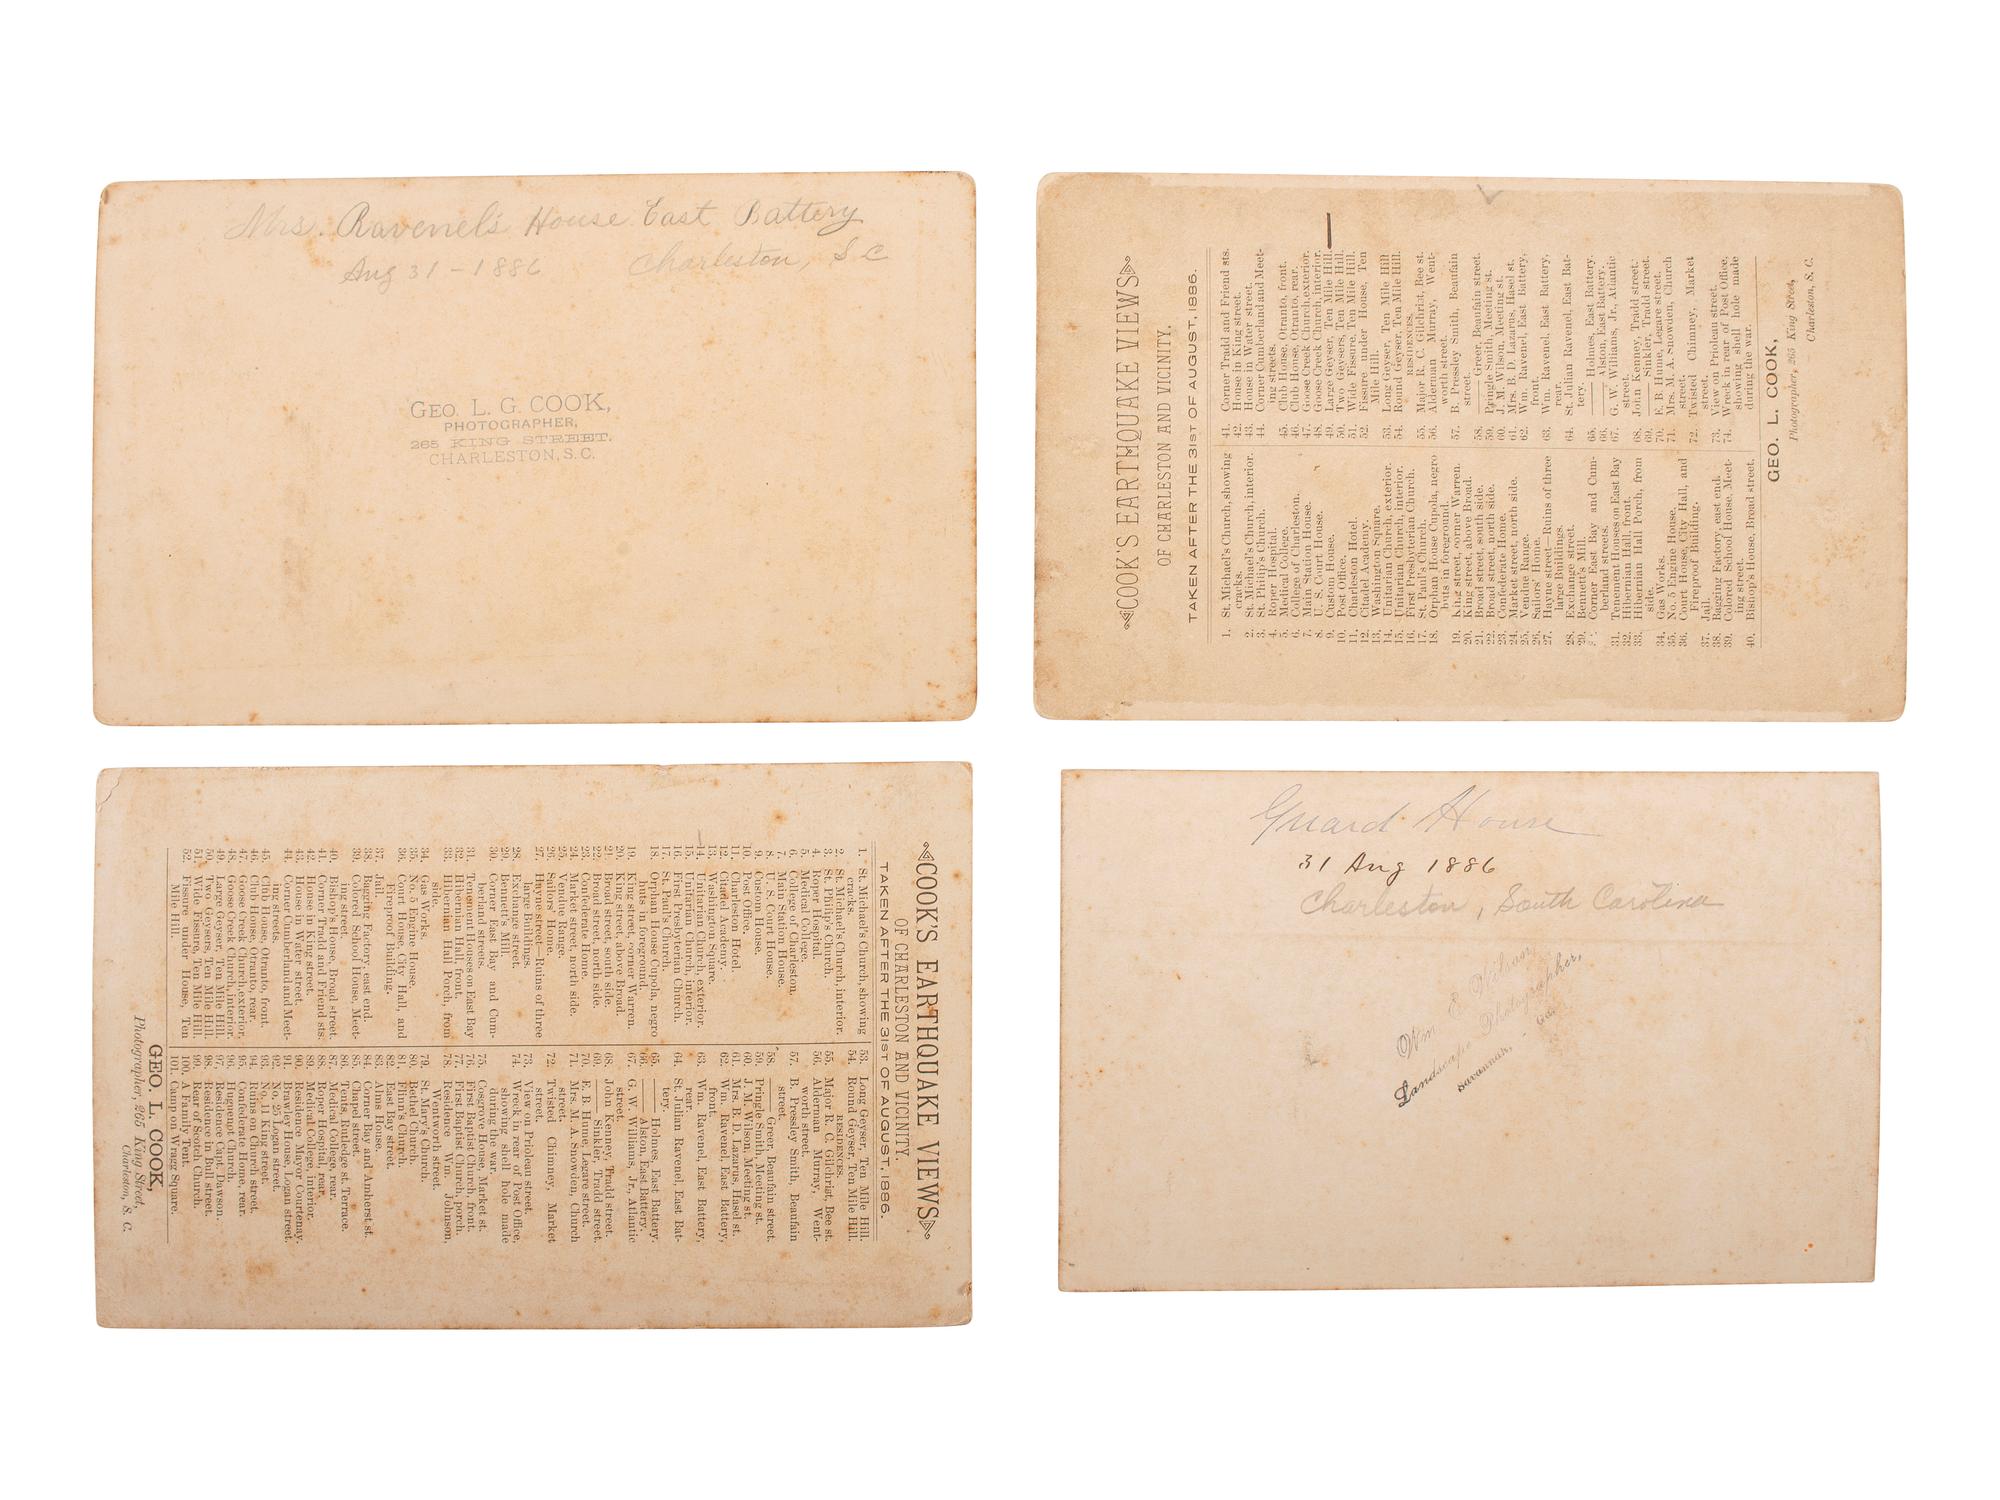 Mrs. Ravenel's House East Battery
Aug 31 - 1886 Charleston, S C
GEO. L. G. COOK,
PHOTOGRAPHER,
265 KING STREET.
CHARLESTON, S.C.
COOK'S EARTHQUAKE VIEWS
OF CHARLESTON AND VICINITY.
TAKEN AFTER THE 31ST OF AUGUST, 1886.
1. St. Michael's Church, showing
cracks.
2. St. Michael's Church, interior.
3. St. Philip's Church.
4. Roper Hospital.
5. Medical College.
6. College of Charleston.
7. Main Station House.
8. U. S. Court House.
9. Custom House.
10. Post Office.
11. Charleston Hotel.
12. Citadel Academy.
13. Washington Square.
14. Unitarian Church, exterior.
15. Unitarian Church, interior.
16. First Presbyterian Church.
17. St. Paul's Church.
18. Orphan House Cupola, negro
huts in foreground.
19. King street, corner Warren.
20. King street, above Broad.
21. Broad street, south side.
22. Broad street, north side.
23. Confederate Home.
24. Market street, north side.
25. Vendue Range.
26. Sailors' Home.
27. Hayne street—Ruins of three
large Buildings.
28. Exchange street.
29. Bennett's Mill.
Corner East Bay and Cum-
berland streets.
31. Tenement Houses on East Bay
32. Hibernian Hall, front.
33. Hibernian Hall Porch, from
side.
34. Gas Works.
35. No. 5 Engine House.
36. Court House, City Hall, and
Fireproof Building.
37. Jail.
38. Bagging Factory, east end.
39. Colored School House, Meet-
ing street.
40. Bishop's House, Broad street.
41. Corner Tradd and Friend sts.
42. House in King street.
43. House in Water street.
44. Corner Cumberland and Meet-
ing streets.
45. Club House, Otranto, front.
46. Club House, Otranto, rear.
47. Goose Creek Church, exterior.
48. Goose Creek Church, interior.
49. Large Geyser, Ten Mile Hill.
50. Two Geysers, Ten Mile Hill.
51. Wide Fissure, Ten Mile Hill.
52. Fissure under House, Ten
Mile Hill.
53. Long Geyser, Ten Mile Hill
54. Round Geyser, Ten Mile Hill.
RESIDENCES.
55. Major R. C. Gilchrist, Bee st.
56. Alderman Murray, Went-
worth street.
57. B. Pressley Smith, Beaufain
street.
58. —— Greer, Beaufain street.
59. Pringle Smith, Meeting st.
60. J. M. Wilson, Meeting st.
61. Mrs. B. D. Lazarus, Hasel st.
62. Wm. Ravenel, East Battery,
front.
63. Wm. Ravenel, East Battery,
rear.
64. St. Julian Ravenel, East Bat-
tery.
65. —— Holmes, East Battery.
66. —— Alston, East Battery.
67. G. W. Williams, Jr., Atlantic
street.
68. John Kenney, Tradd street.
69. —— Sinkler, Tradd street.
70. E. B. Hume, Legare street.
71. Mrs. M. A. Snowden, Church
street.
72. Twisted Chimney, Market
street.
73. View on Prioleau street.
74. Wreck in rear of Post Office,
showing shell hole made
during the war.
GEO. L. COOK,
Photographer, 265 King Street,
Charleston, S. C.
COOK'S EARTHQUAKE VIEWS
OF CHARLESTON AND VICINITY.
TAKEN AFTER THE 31ST OF AUGUST, 1886.
1. St. Michael's Church, showing
cracks.
2. St. Michael's Church, interior.
3. St. Philip's Church.
4. Roper Hospital.
5. Medical College.
6. College of Charleston.
7. Main Station House.
8. U. S. Court House.
9. Custom House.
10. Post Office.
11. Charleston Hotel.
12. Citadel Academy.
13. Washington Square.
14. Unitarian Church, exterior.
15. Unitarian Church, interior.
16. First Presbyterian Church.
17. St. Paul's Church.
18. Orphan House Cupola, negro
huts in foreground.
19. King street, corner Warren.
20. King street, above Broad.
21. Broad street, south side.
22. Broad street, north side.
23. Confederate Home.
24. Market street, north side.
25. Vendue Range.
26. Sailors' Home.
27. Hayne street—Ruins of three
large Buildings.
28. Exchange street.
29. Bennett's Mill.
30. Corner East Bay and Cum-
berland streets.
31. Tenement Houses on East Bay
32. Hibernian Hall, front.
33. Hibernian Hall Porch, from
side.
34. Gas Works.
35. No. 5 Engine House.
36. Court House, City Hall, and
Fireproof Building.
37. Jail.
38. Bagging Factory, east end.
39. Colored School House, Meet-
ing street.
40. Bishop's House, Broad street.
41. Corner Tradd and Friend sts.
42. House in King street.
43. House in Water street.
44. Corner Cumberland and Meet-
ing streets.
45. Club House, Otranto, front.
46. Club House, Otranto, rear.
47. Goose Creek Church, exterior.
48. Goose Creek Church, interior.
49. Large Geyser, Ten Mile Hill.
50. Two Geysers, Ten Mile Hill.
51. Wide Fissure, Ten Mile Hill.
52. Fissure under House, Ten
Mile Hill.
53. Long Geyser, Ten Mile Hill.
54. Round Geyser, Ten Mile Hill.
RESIDENCES.
55. Major R. C. Gilchrist, Bee st.
56. Alderman Murray, Went-
worth street.
57. B. Pressley Smith, Beaufain
street.
58. —— Greer, Beaufain street.
59. Pringle Smith, Meeting st.
60. J. M. Wilson, Meeting st.
61. Mrs. B. D. Lazarus, Hasel st.
62. Wm. Ravenel, East Battery,
front.
63. Wm. Ravenel, East Battery,
rear.
64. St. Julian Ravenel, East Bat-
tery.
65. —— Holmes, East Battery.
66. —— Alston, East Battery.
67. G. W. Williams, Jr., Atlantic
street.
68. John Kenney, Tradd street.
69. —— Sinkler, Tradd street.
70. E. B. Hume, Legare street.
71. Mrs. M. A. Snowden, Church
street.
72. Twisted Chimney, Market
street.
73. View on Prioleau street.
74. Wreck in rear of Post Office,
showing shell hole made
during the war.
75. Cosgrove House, Market st.
76. First Baptist Church, front.
77. First Baptist Church, porch.
78. Residence Wm. Johnson,
Wentworth street.
79. St. Mary's Church.
80. Bethel Church.
81. Flinn's Church.
82. East Bay street.
83. Alms House.
84. Corner Bay and Amherst st.
85. Chapel street.
86. Tents, Rutledge st. Terrace.
87. Medical College, rear.
88. Roper Hospital, rear.
89. Medical College, interior.
90. Residence Mayor Courtenay.
91. Brawley House, Logan street.
92. No. 25 Logan street.
93. No. 11 King street.
94. Ruins on Church street.
95. Confederate Home, rear.
96. Huguenot Church.
97. Residence Capt. Dawson.
98. Residence in Bull street.
99. Rear of Scotch Church.
100. A Family Tent.
101. Camp on Wragg Square.
GEO. L. COOK,
Photographer, 265 King Street,
Charleston, S. C.
Guard House
31 Aug 1886
Charleston, South Carolina
Wm E. Wilson
Landscape Photographer,
Savannah, - Ga.